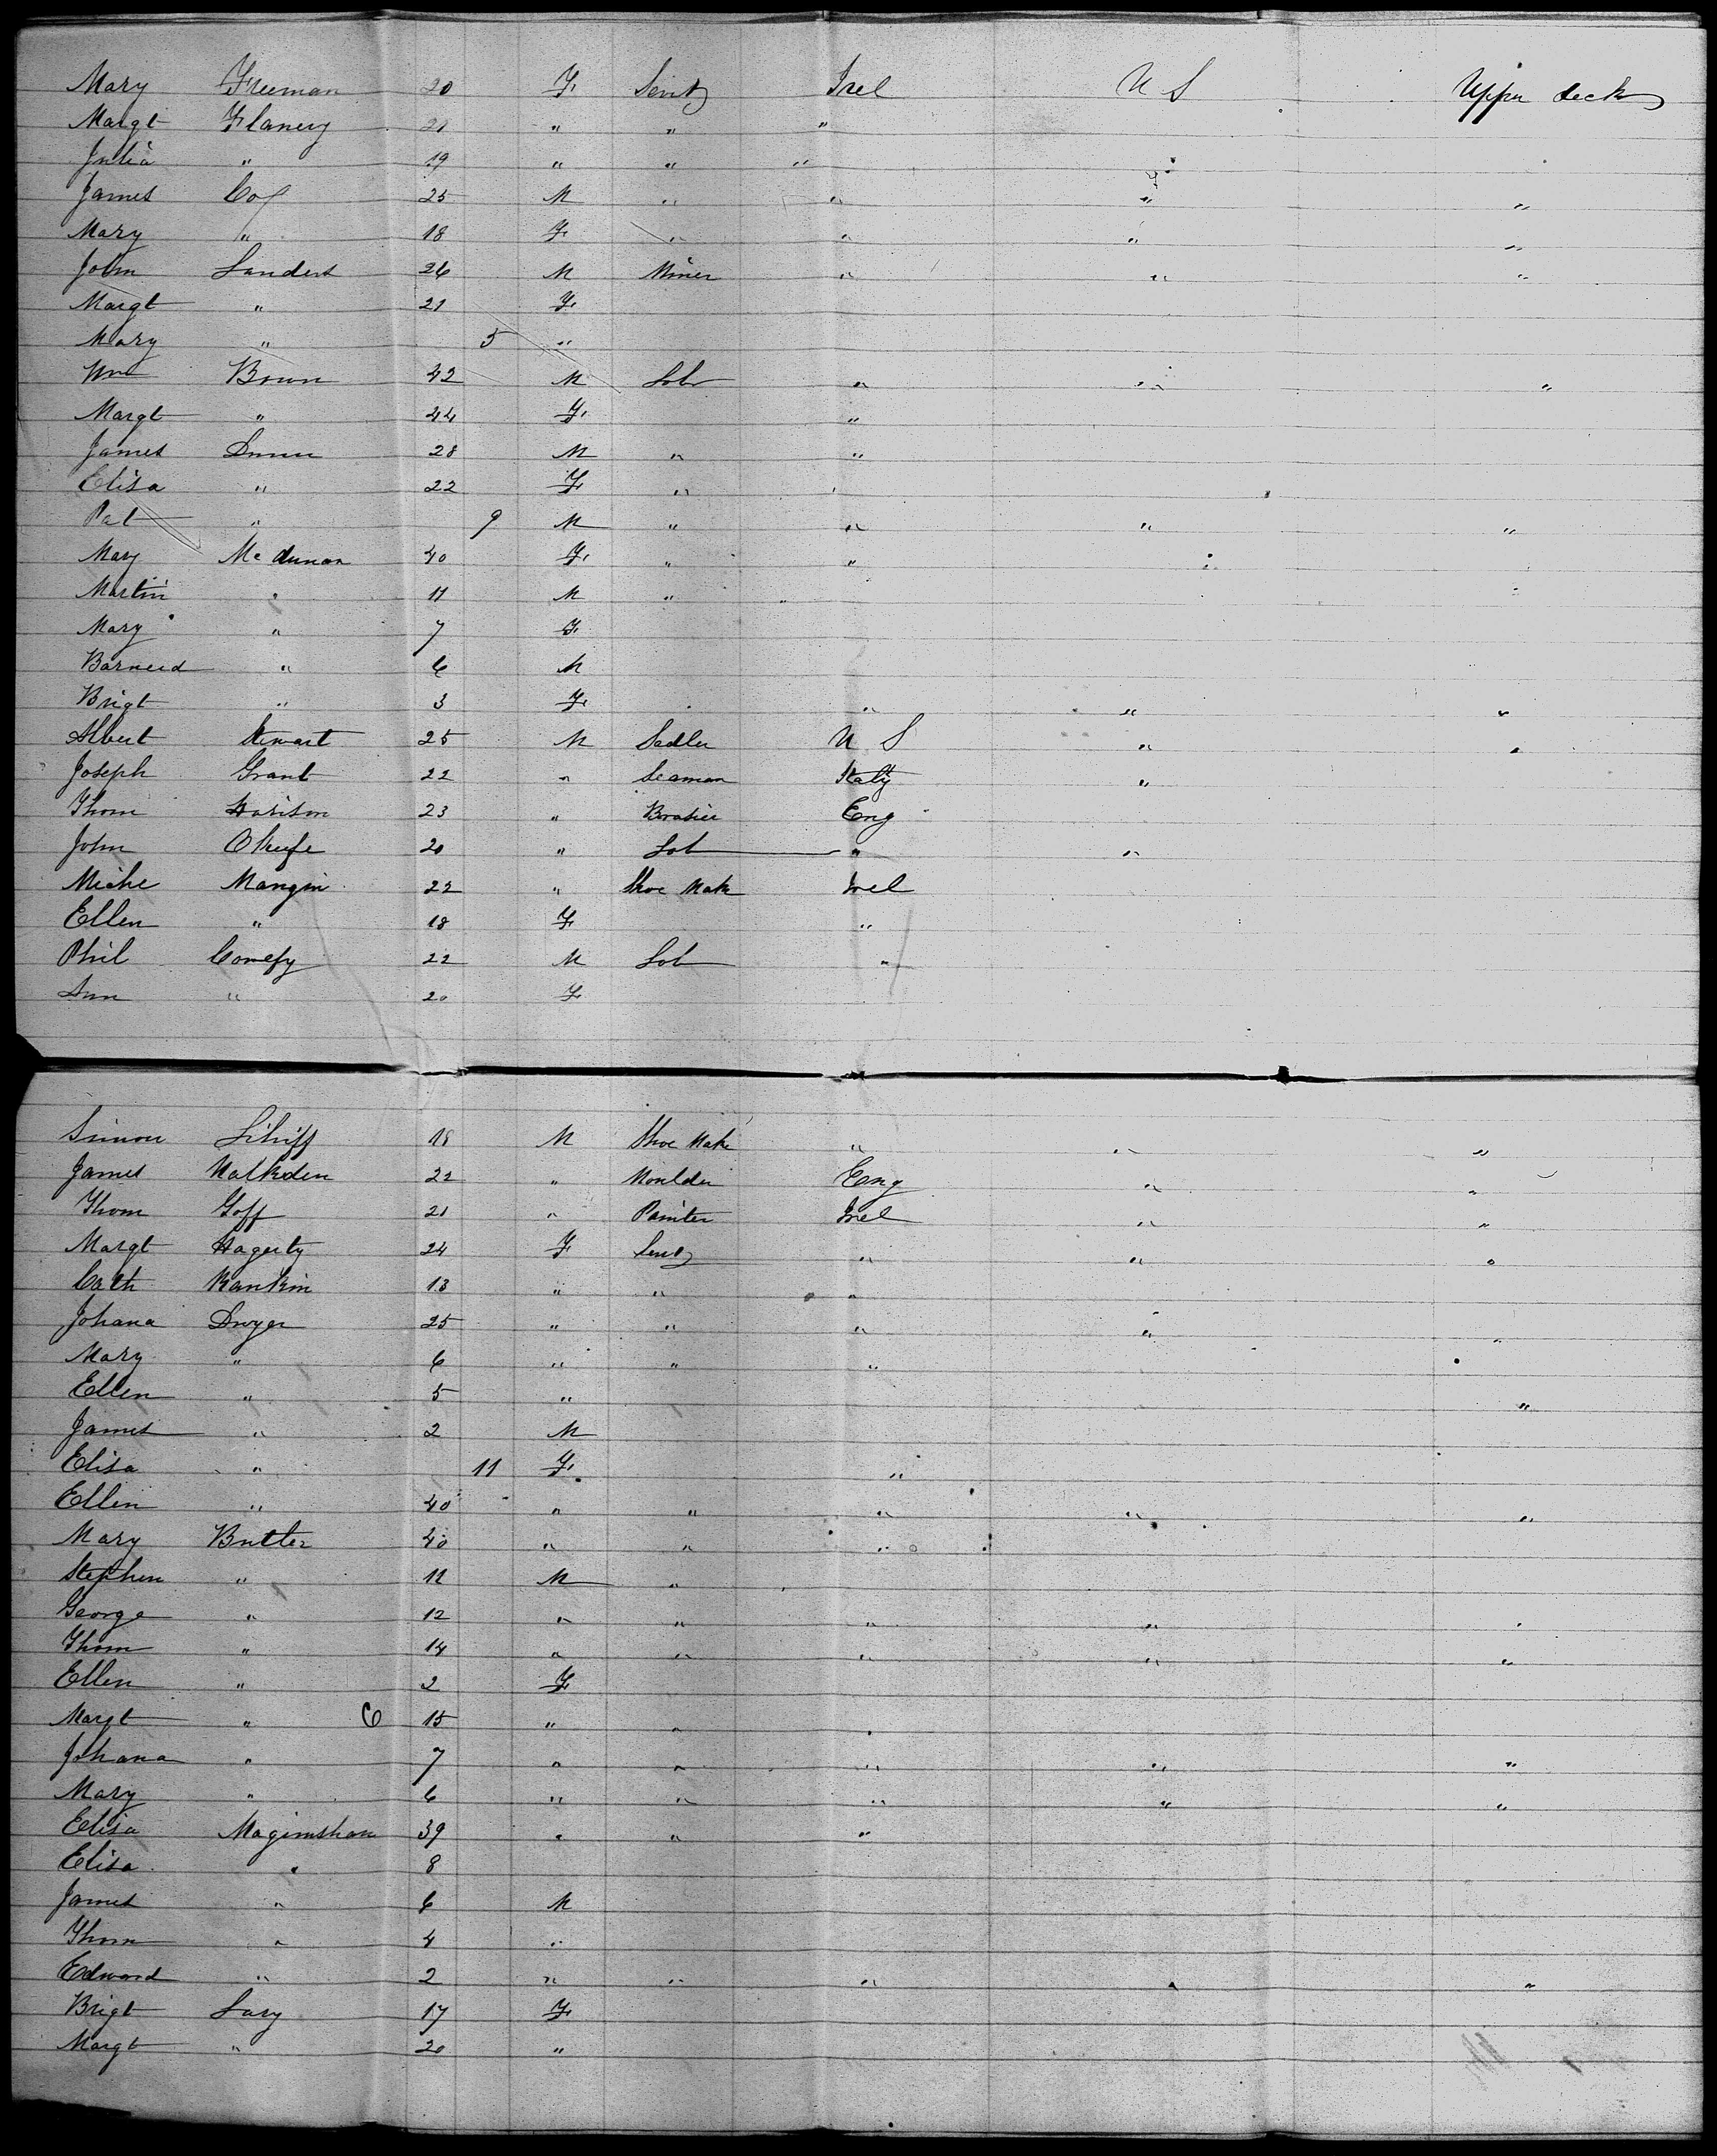 Mary Freeman 20 F Servt Irel U S Upper deck
Margt Flanery 21 " " "
Julia " 19 " " "
James Cof 25 M " " " "
Mary " 18 F " " " "
John Sanders 26 M Miner " " "
Margt " 21 F
Mary " 5 "
Wm Brown 42 M Lab " " "
Margt " 44 F "
James Dunn 28 M " "
Elisa " 22 F "
Pat " 9 M " " " "
Mary Mc dunan 40 F " "
Martin " 11 M "
Mary " 7 F
Barned " 6 M
Brigt " 3 F " " "
Albert Stewart 25 M Sadler U S " "
Joseph Grant 22 " Seaman Italy "
Thom Harison 23 " Brasier Eng
John OKeefe 20 " Lab " "
Miche Mangin 22 " Shoe Mak Irel
Ellen " 18 F "
Phil Comefy 22 M Lab "
Ann " 20 F
Simon 18 M Shoe Make " " "
James Walkden 22 " Moulder Eng " "
Thom Goff 21 " Painter Irel " "
Margt Hagerty 24 F Servt " " "
Cath Rankin 13 " " "
Johana Dwyer 25 " " " " "
Mary " 6 " " "
Ellen " 5 " "
James " 2 M
Elisa " 11 F "
Ellen " 40 " " " " "
Mary Butler 40 " " "
Stephen " 11 M "
George " 12 " " " " "
Thom " 14 " " " " "
Ellen " 2 F
Margt " 6 15 " " "
Johana " 7 " " " " "
Mary " 6 " " " " "
Elisa Magimshan 39 " " "
Elisa " 8
James " 6 M
Thom " 4 "
Edward " 2 " " " " "
Brigt Lary 17 F
Margt " 20 "